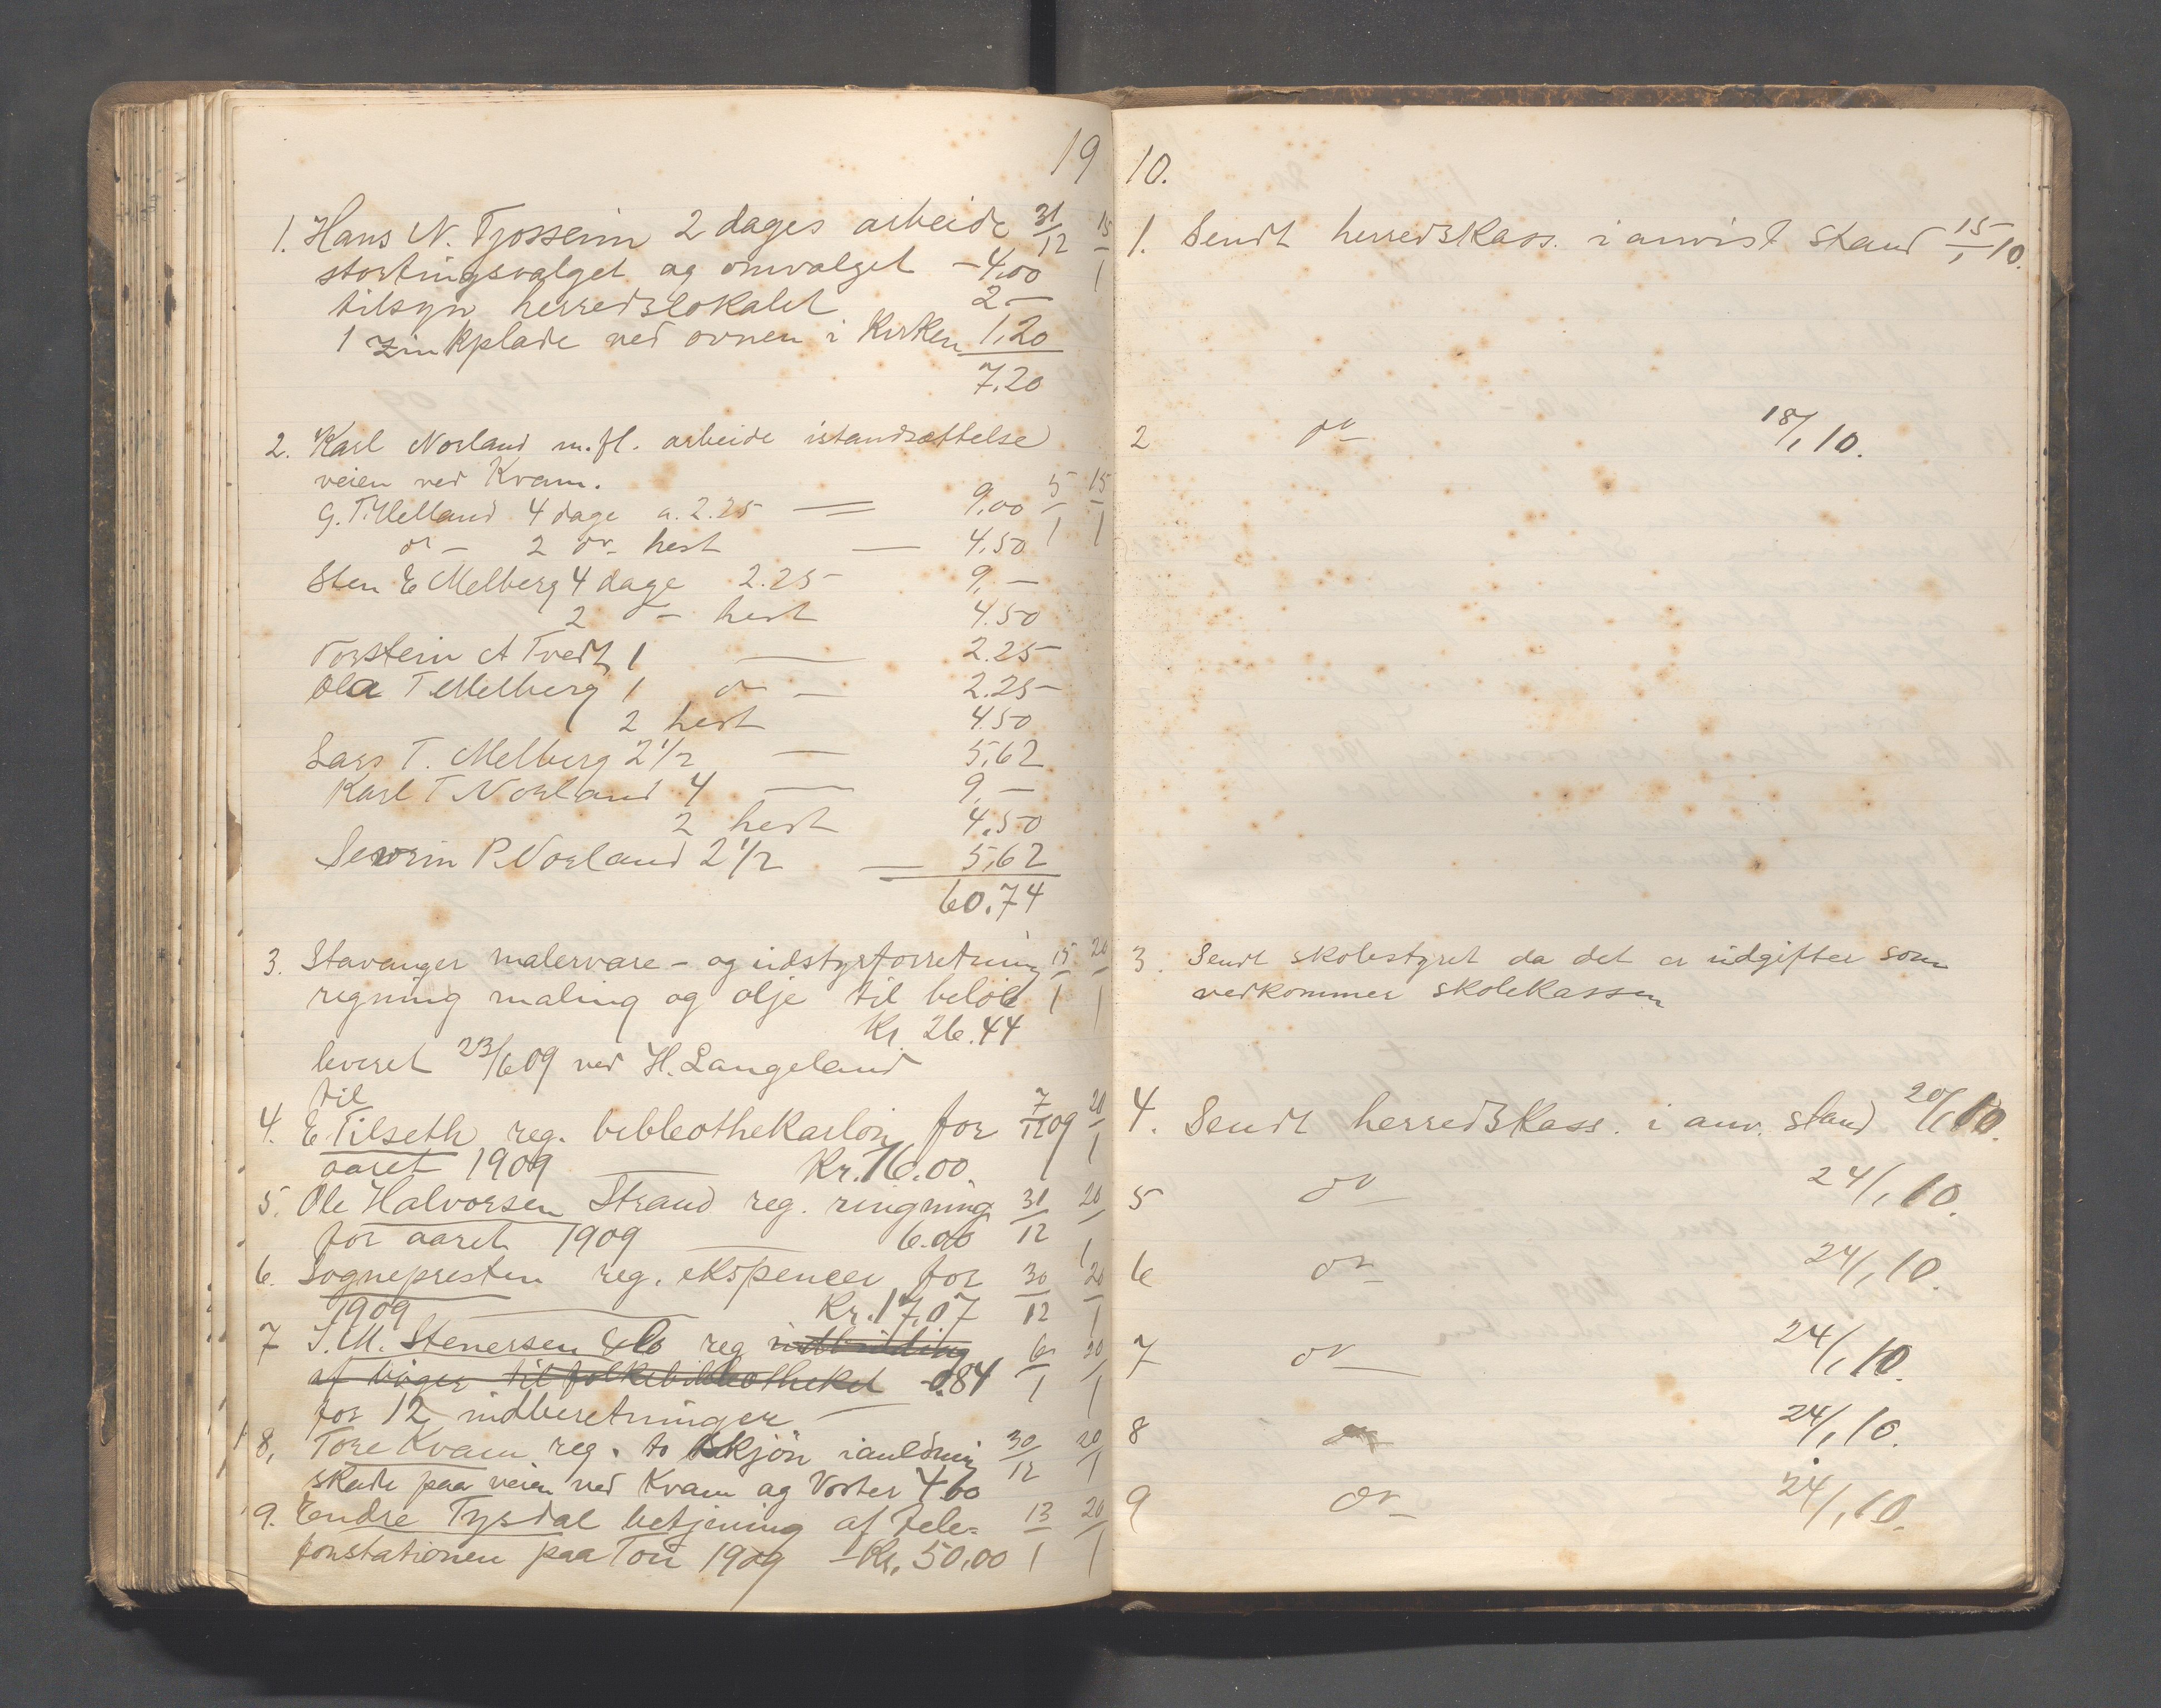 19
1. Hans N. Tjossem 2 dages arbeide 31/12 15/1
stortingsvalget og omvalget - 4,00
tilsyn herredslokalet 2 -
1 zinkplade ved ovnen i Kirken 1,20
7.20
2. Karl Norland m.fl. arbeide istandsættelse
veien ved Kvam. 5/1 15/1
G. T. Helland 4 dage a. 2.25 = 9,00
do - 2 do - hest — 4,50
Sten E Melberg 4 dage 2.25 - 9, -
2 do - hest 4.50
Torstein A Tvedt 1 — 2.25
Ola T Melberg 1 do - 2.25
2 hest 4.50
Lars T. Melberg 2 1/2 — 5,62
Karl T Norland 4 — 9, -
2 hest 4,50
Severin P. Norland 2 1/2 — 5,62
60.74
3. Stavanger malervare - og udstyrforretning 15/1 20/1
regning maling og olje til beløb
Kr. 26.44
leveret 23/6 09 ved H. Langeland
til
4. E. Tilseth reg. bibliothekarløn for 7/12 09 20/1
aaret 1909 — Kr. 16.00.
5. Ole Halvorsen Strand reg. ringning 31/12 20/1
for aaret 1909 — 6.00
6. Sognepresten reg. ekspencer for 30/12 20/1
1909 — Kr. 17,07
7 J. M. Stenersen & Co reg indbinding 6/1 20/1
af bøger til folkebibliotheket - 0.84
for 12 indberetninger —
8. Tore Kvam reg. to skjøn ianledning 30/12 20/1
skade paa veien ved Kvam og Vorter 4.60
9. Endre Tysdal betjening af tele= 13/1 20/1
fonstationen paa Tou 1909 - Kr. 50,00
10.
1. Sendt herredskass. i anvist stand 15/1 10.
2 do - 18/1 10.
3. Sendt skolestyret da det er udgifter som
vedkommer skolekassen
4. Sendt herredskass. i anv. stand 20/1 10.
5 do - 24/1 10.
6 do - 24/1 10.
7 do - 24/1 10.
8 do 24/1 10.
9 do - 24/1 10.